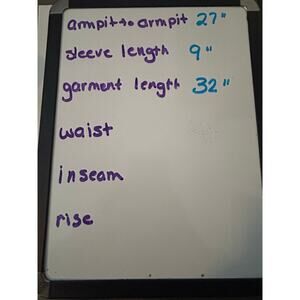 armpit to armpit 27"
sleeve length 9"
garment length 32"
waist
inseam
rise